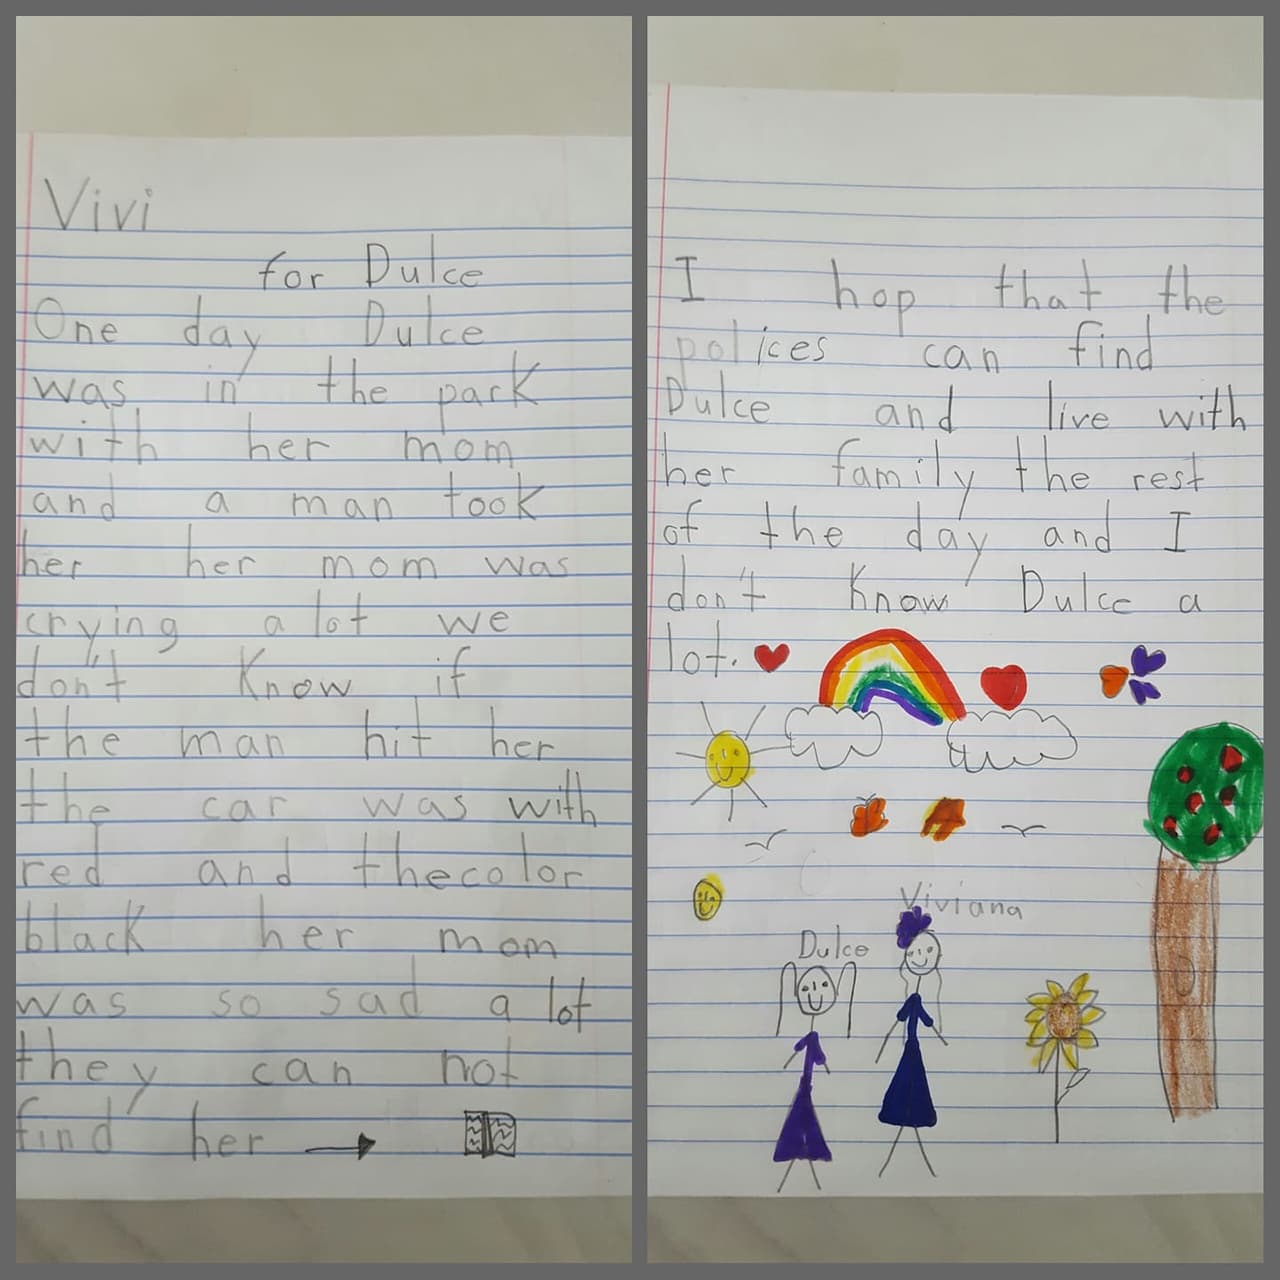 Vivi
for Dulce
One day Dulce
was in the park
with her mom
and a man took
her her mom was
crying a lot we
don't know if
the man hit her
the car was with
red and thecolor
black her mom
was so sad a lot
they can not
find her
I hop that the
polices can find
Dulce and live with
her family the rest
of the day and I
don't know Dulce a
lot.
Viviana
Dulce